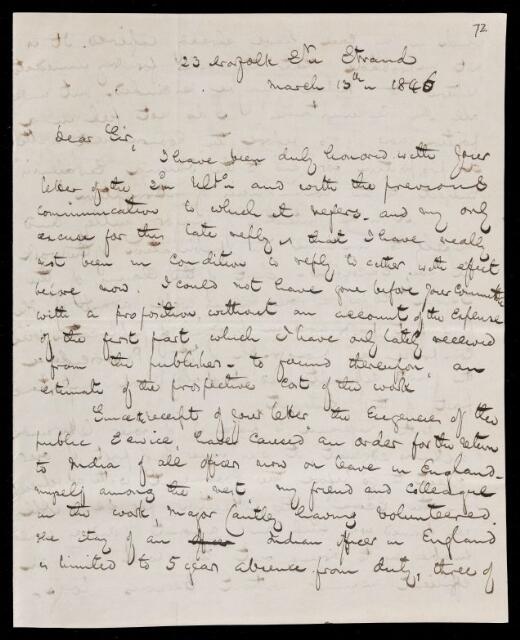 72
23 Norfolk St. Strand
March 13th 1846
Dear Sir,
I have been duly honored with your
letter of the 2nd Ulto. and with the previous
communication to which it refers - and my only
excuse for this late reply is that I have really
not been in condition to reply to either with effect
before now. I could not have gone before your Committee
with a proposition without an account of the Expense
of the first part, which I have only lately received
from the publisher - to found thereupon, an
estimate of the prospective cost of the work
Since receipt of your letter, the Exigencies of the
public Service, have caused an order for the return
to India of all officers now on leave in England -
myself among the rest. my friend and colleague
in the work, Major Cautley having volunteered.
The stay of an Indian officer in England
is limited to 5 years absence from duty, three of